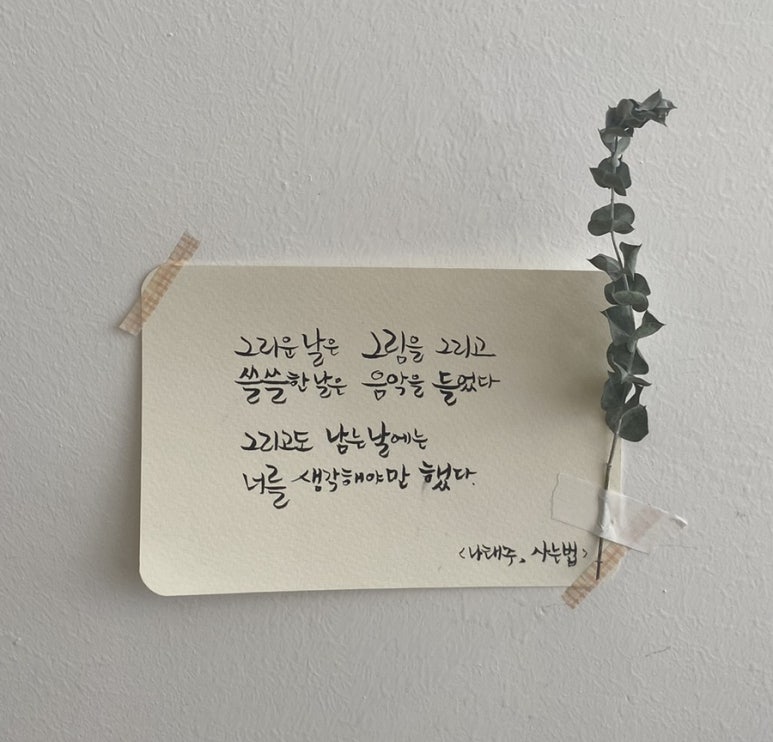 그리운 날은 그림을 그리고
쓸쓸한 날은 음악을 들었다
그리고도 남는 날에는
너를 생각해야만 했다.
<나태주, 사는법>